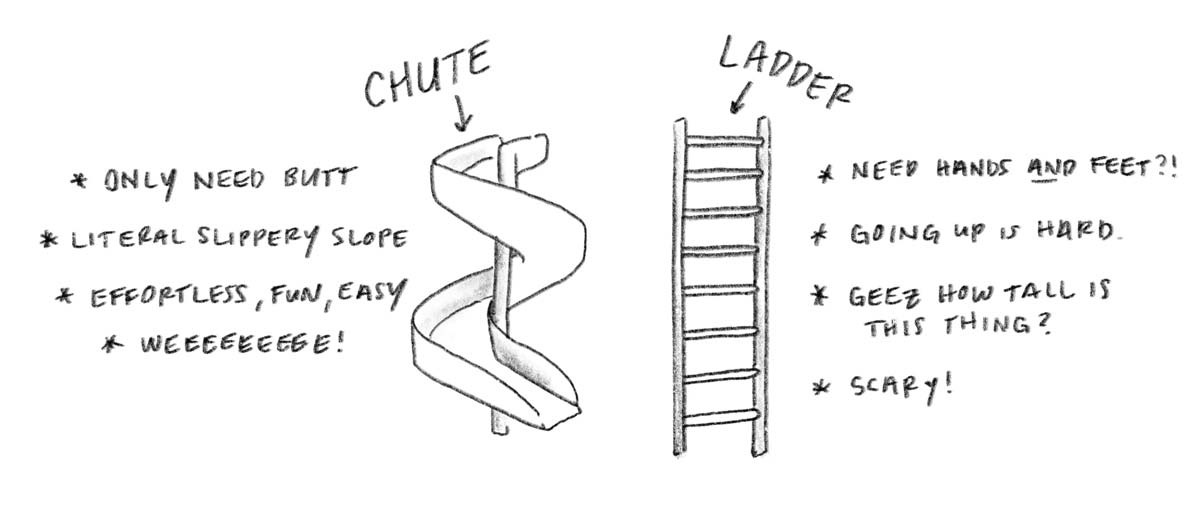 CHUTE
* ONLY NEED BUTT
* LITERAL SLIPPERY SLOPE
* EFFORTLESS, FUN, EASY
* WEEEEEEEEE!
LADDER
* NEED HANDS AND FEET?!
* GOING UP IS HARD.
* GEEZ HOW TALL IS
THIS THING?
* SCARY!